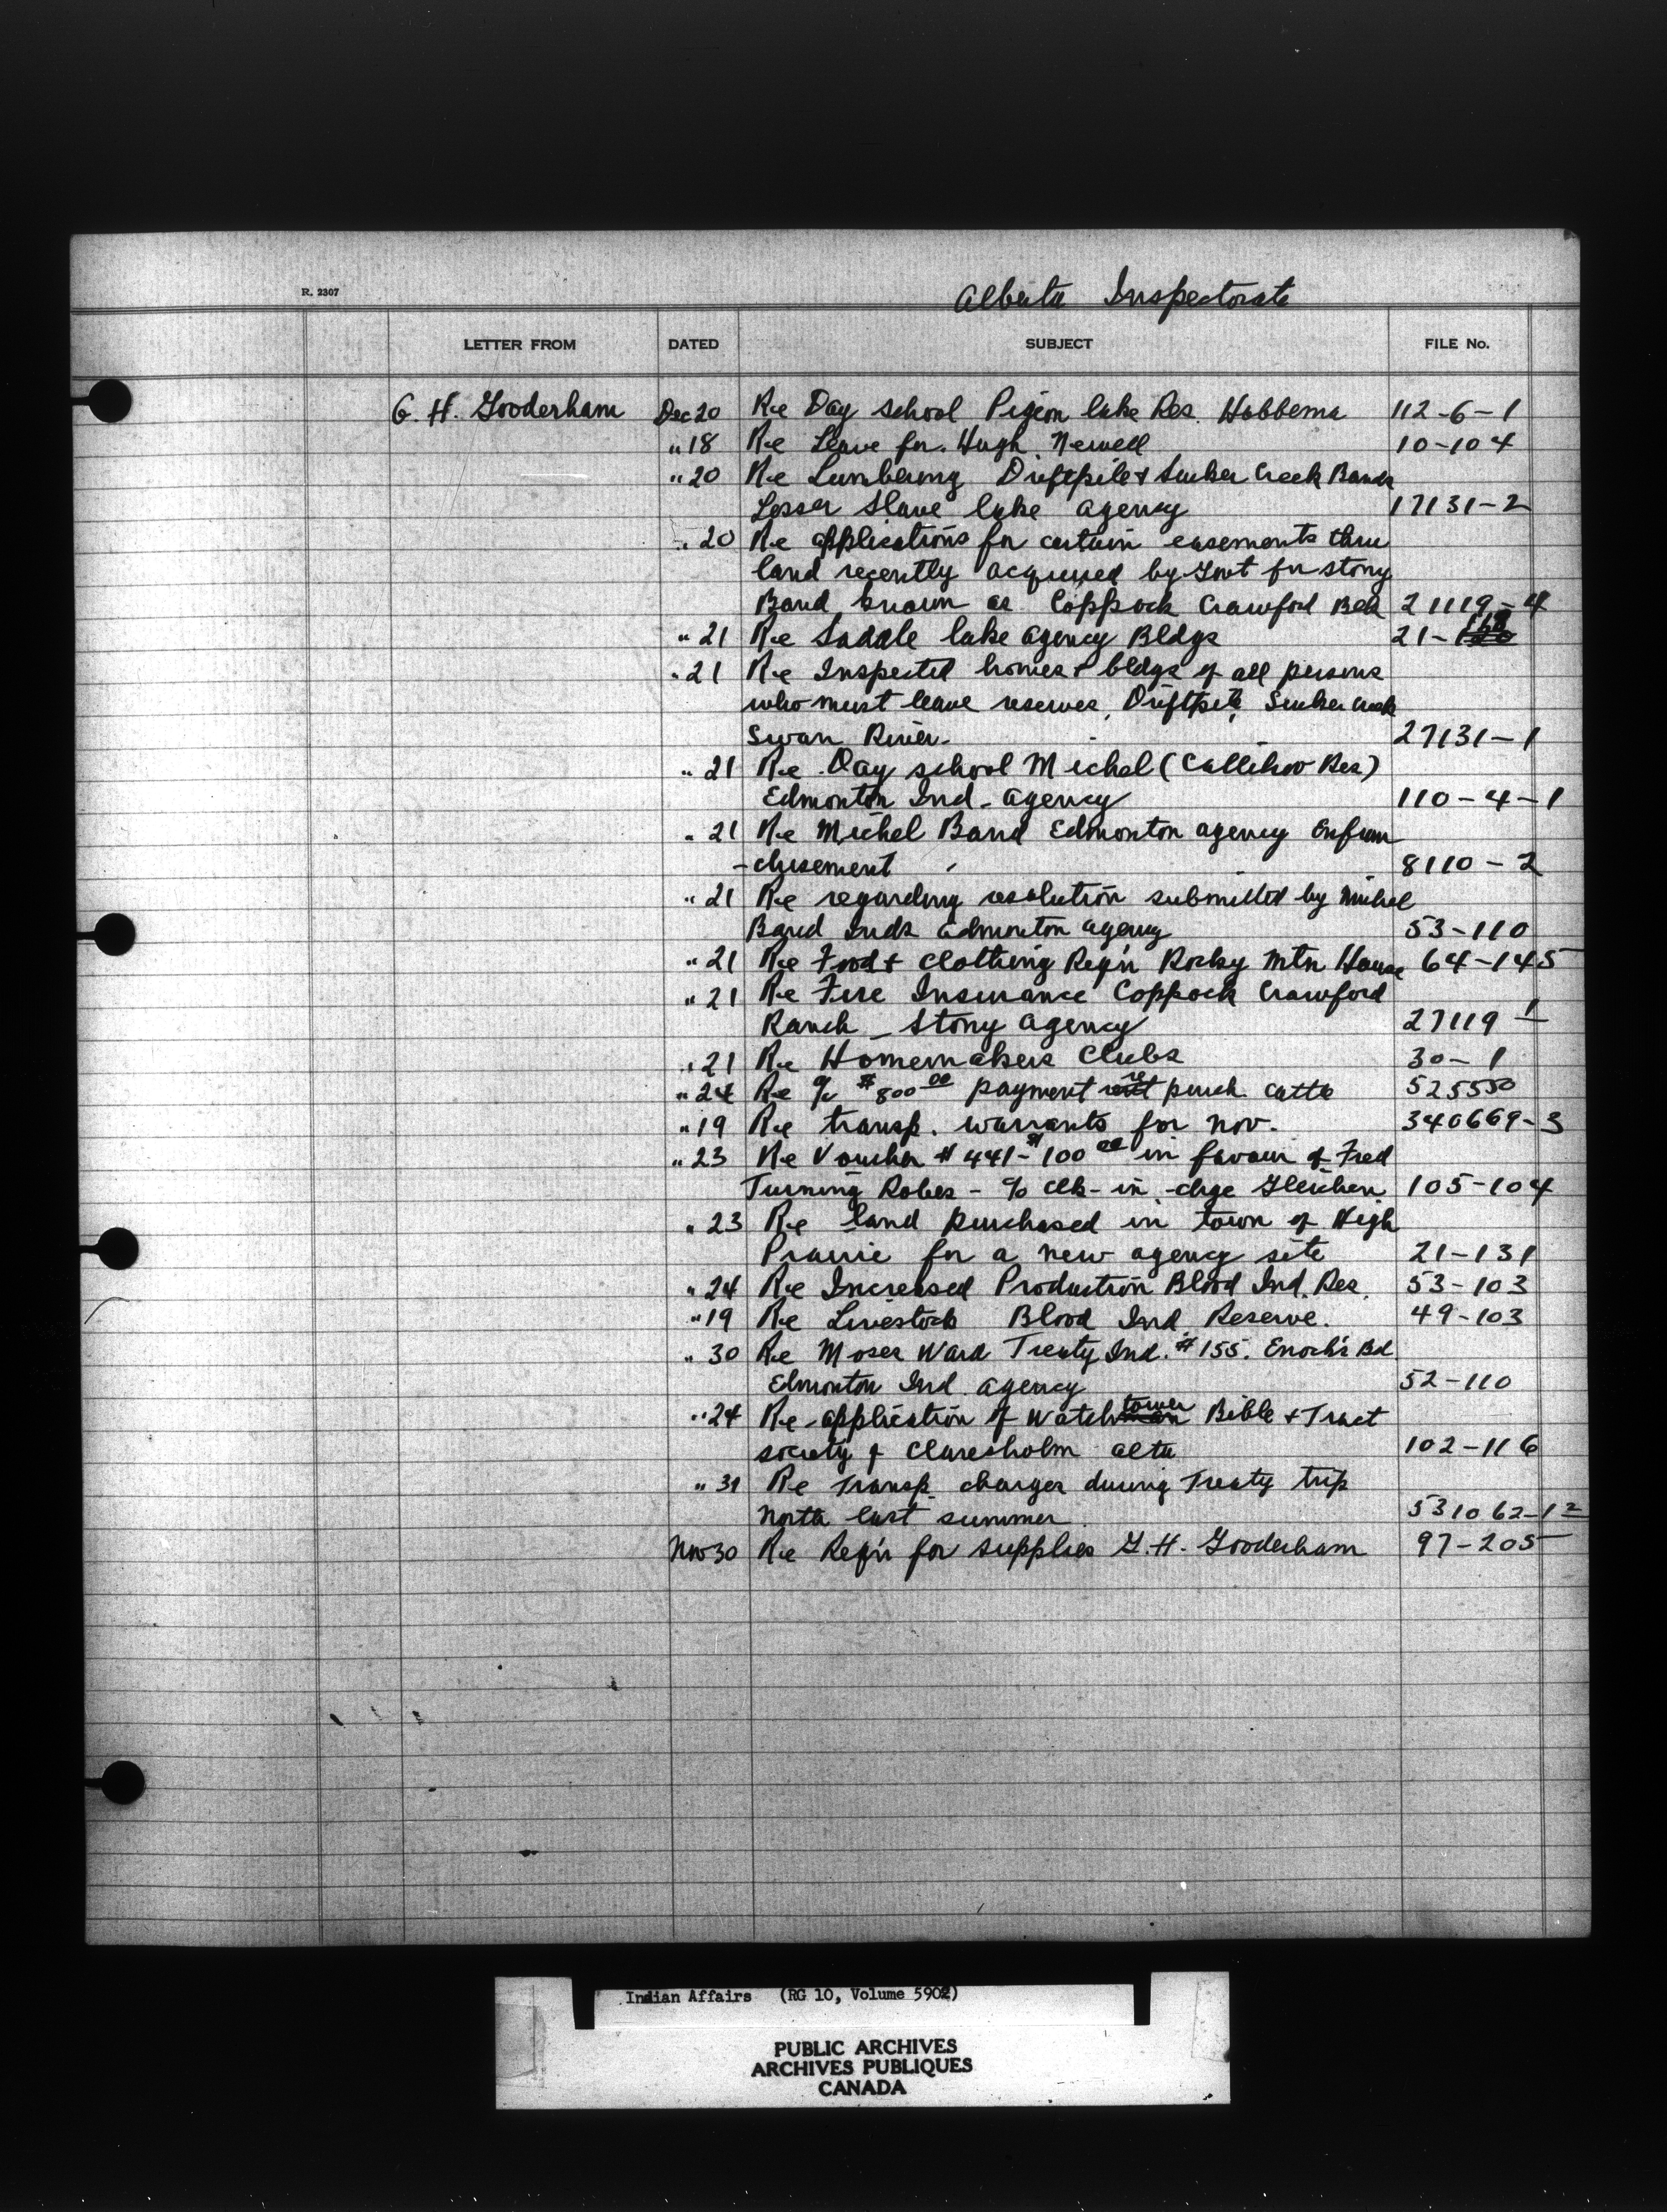 R. 2307
Alberta Inspectorate
LETTER FROM DATED SUBJECT FILE No.
G. H. Gooderham Dec 20 Re Day school Pigeon lake Res. Hobbema 112-6-1
" 18 Re Leave for Hugh Newell 10-104
" 20 Re Lumbering Driftpile & Sucker Creek Bands
Lesser Slave lake agency 17131-2
" 20 Re applications for certain easements thru
land recently acquired by Govt for stony
Band known as Coppock Crawford 21119-4
" 21 Re Saddle lake agency Bldgs 21-
" 21 Re Inspected homes & bldgs of all persons
who must leave reserves, Driftpile, Sucker Creek
Swan River. 27131-1
" 21 Re Day school Michel (Callihoo Res)
Edmonton Ind. agency 110-4-1
" 21 Re Michel Band Edmonton agency Enfran
-chisement 8110-2
" 21 Re regarding resolution submitted by Michel
Band Inds Edmonton agency 53-110
" 21 Re Food & clothing Reqn Rocky Mtn House 64-145
" 21 Re Fire Insurance Coppock Crawford
Ranch - Stony agency 27119-1
" 21 Re Homemakers Clubs 30-1
" 24 Re a/c $800 00 payment re purch. cattle 525550
" 19 Re transp. warrants for Nov. 340669-3
" 23 Re Voucher # 441- $100 00 in favour of Fred
Turning Robes - % clk-in-chge Gleichen 105-104
" 23 Re land purchased in town of High
Prairie for a new agency site 21-131
" 24 Re Increased Production Blood Ind. Res. 53-103
" 19 Re Livestock Blood Ind Reserve. 49-103
" 30 Re Moses Ward Treaty Ind. #155. Enoch's Bd.
Edmonton Ind. agency 52-110
" 24 Re application of Watchtower Bible & Tract
society of Claresholm alta 102-116
" 31 Re Transp. charges during Treaty trip
North last summer 531062-12
Nov 30 Re Reqn for supplies G. H. Gooderham 97-205
Indian Affairs (RG 10, Volume 5902)
PUBLIC ARCHIVES
ARCHIVES PUBLIQUES
CANADA